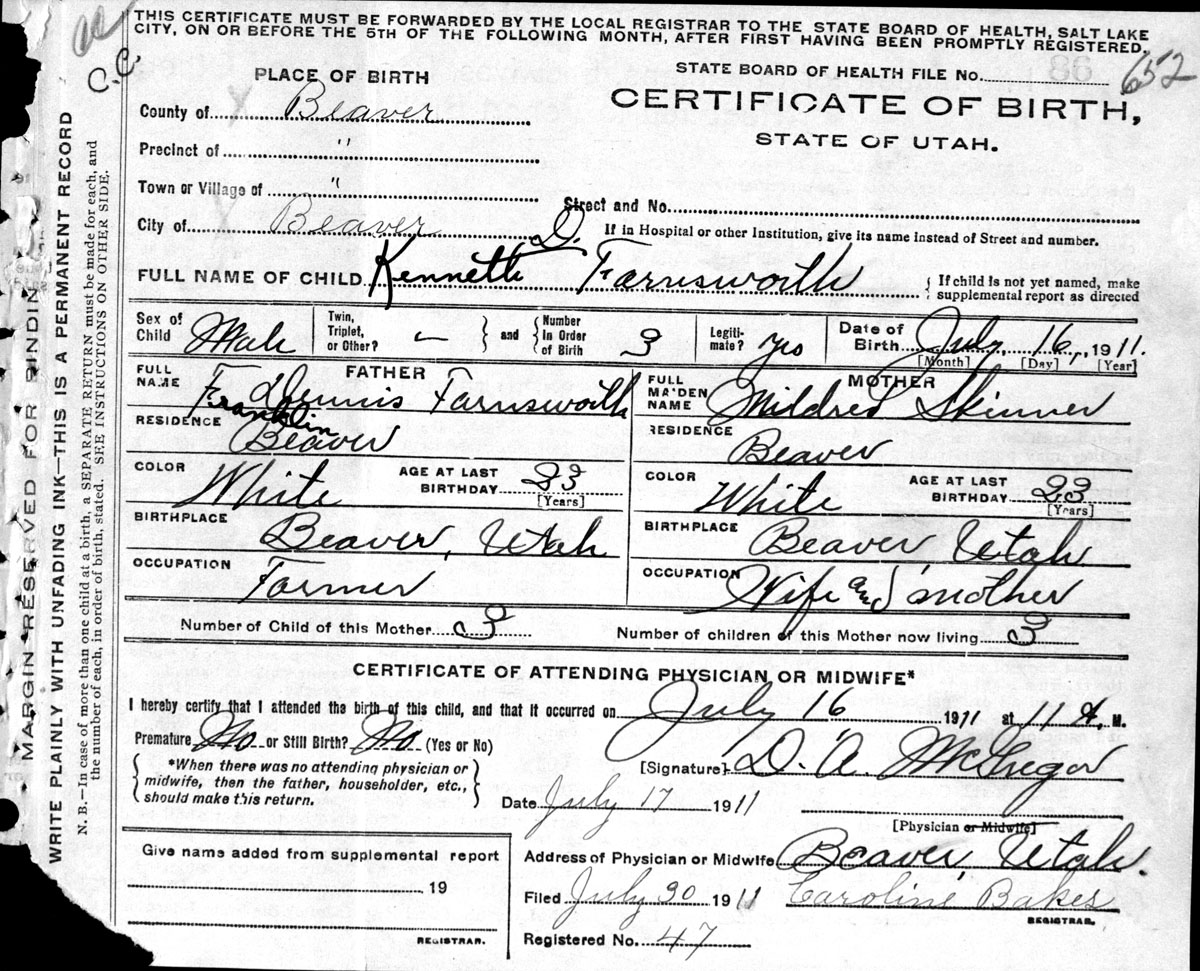 THIS CERTIFICATE MUST BE FORWARDED BY THE LOCAL REGISTRAR TO THE STATE BOARD OF HEALTH, SALT LAKE
CITY, ON OR BEFORE THE 5TH OF THE FOLLOWING MONTH, AFTER FIRST HAVING BEEN PROMPTLY REGISTERED.
C.C.
PLACE OF BIRTH
STATE BOARD OF HEALTH FILE No. 652
86
CERTIFICATE OF BIRTH,
STATE OF UTAH.
County of X Beaver
Precinct of "
Town or Village of "
Street and No.
City of X Beaver
If in Hospital or other Institution, give its name instead of Street and number.
FULL NAME OF CHILD Kenneth D. Farnsworth
{ If child is not yet named, make
supplemental report as directed
Sex of Child Male
Twin, Triplet, or Other? — and Number in Order of Birth 3
Legitimate? Yes
Date of Birth July 16, 1911.
[Month] [Day] [Year]
FATHER
FULL NAME Franklin Dennis Farnsworth
RESIDENCE Beaver
COLOR White
AGE AT LAST BIRTHDAY 33 [Years]
BIRTHPLACE Beaver, Utah
OCCUPATION Farmer
MOTHER
FULL MAIDEN NAME Mildred Skinner
RESIDENCE Beaver
COLOR White
AGE AT LAST BIRTHDAY 23 [Years]
BIRTHPLACE Beaver, Utah
OCCUPATION Wife and mother
Number of Child of this Mother 3
Number of children of this Mother now living 3
CERTIFICATE OF ATTENDING PHYSICIAN OR MIDWIFE*
I hereby certify that I attended the birth of this child, and that it occurred on July 16 1911 at 11 A. M.
Premature No or Still Birth? No (Yes or No)
*When there was no attending physician or
midwife, then the father, householder, etc.,
should make this return.
[Signature] D. A. McGregor
Date July 17 1911
[Physician or Midwife]
Address of Physician or Midwife Beaver, Utah.
Filed July 30 1911 Caroline Bakes
REGISTRAR.
Registered No. 47
Give name added from supplemental report
19
REGISTRAR.
MARGIN RESERVED FOR BINDIN
WRITE PLAINLY WITH UNFADING INK—THIS IS A PERMANENT RECORD
N. B.—In case of more than one child at a birth, a SEPARATE RETURN must be made for each, and
the number of each, in order of birth, stated. SEE INSTRUCTIONS ON OTHER SIDE.